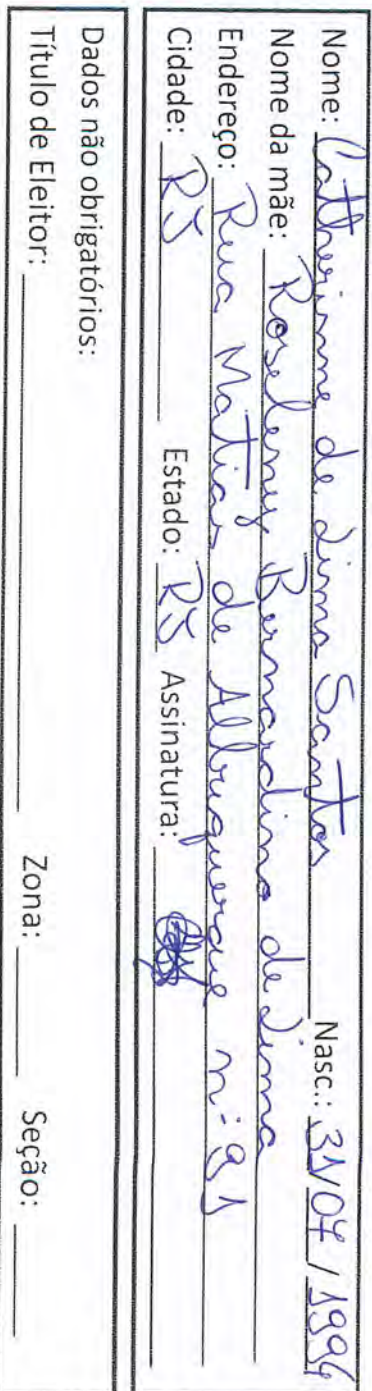 Nome: Catherinne de Lima Santos Nasc.: 31/07/1994
Nome da mãe: Roseleny Bernardino de Lima
Endereço: Rua Matias de Albuquerque nº 91
Cidade: RJ Estado: RJ Assinatura:
Dados não obrigatórios:
Título de Eleitor: Zona: Seção: